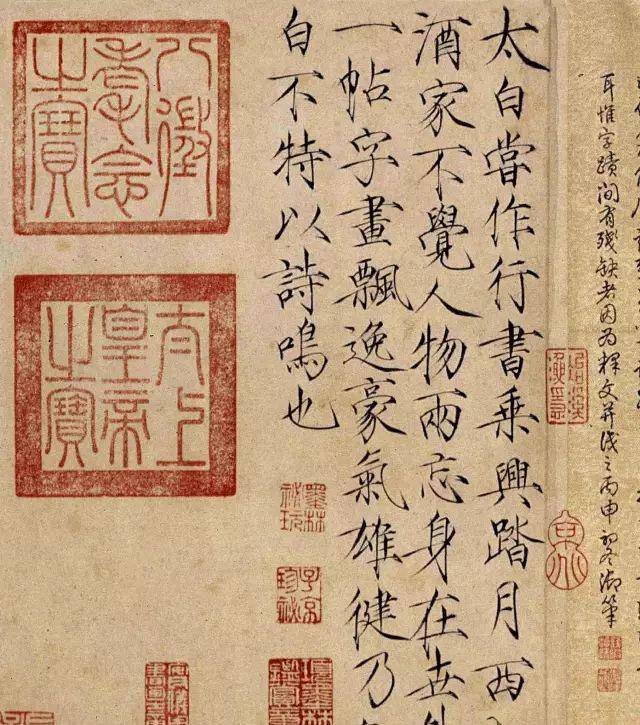 耳惟字蹟間有殘缺者因為釋文并識之丙申初冬御筆
太白嘗作行書乘興踏月西
酒家不覺人物兩忘身在世外
一帖字畫飄逸豪氣雄健乃
白不特以詩鳴也
墨林秘玩
子京珍秘
八徵耄念之寶
太上皇帝之寶